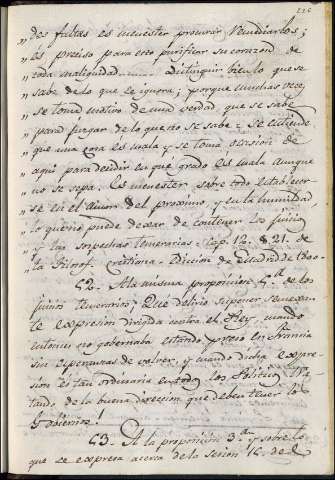 226
" des faltas es menester procurar remediarlos;
" es preciso para eso purificar su corazon de
" toda malignidad ..... Distinguir bien lo que se
" sabe de lo que se ignora; porque muchas veces
" se toma motivo de una verdad que se sabe
" para juzgar de lo que no se sabe. Se entiende
" que una cosa es mala y se toma ocasion de
" aqui para decidir en que grado es mala aunque
" no se sepa. Es menester sobre todo establecer-
" se en el amor del proximo, y en la humildad
" lo que no puede dexar de contener los juicios
" y las sospechas temerarias. Cap. 12. §. 21. de
" la Filosof. Cristiana. Edicion de Madrid de 1800
52. A la misma proposicion 4.ª de los
juicios temerarios; Que delirio suponer semejan-
te expresion dirigida contra el Rey, cuando
entonces no gobernaba estando preso en Francia
sin esperanzas de volver, y cuando dicha expre-
sion es tan ordinaria en todos los Politicos tra-
tando de la buena direccion que deben tener los
Gobiernos!
53. A la proposicion 3.ª y sobre lo
que se expresa acerca de la sesion 16. del